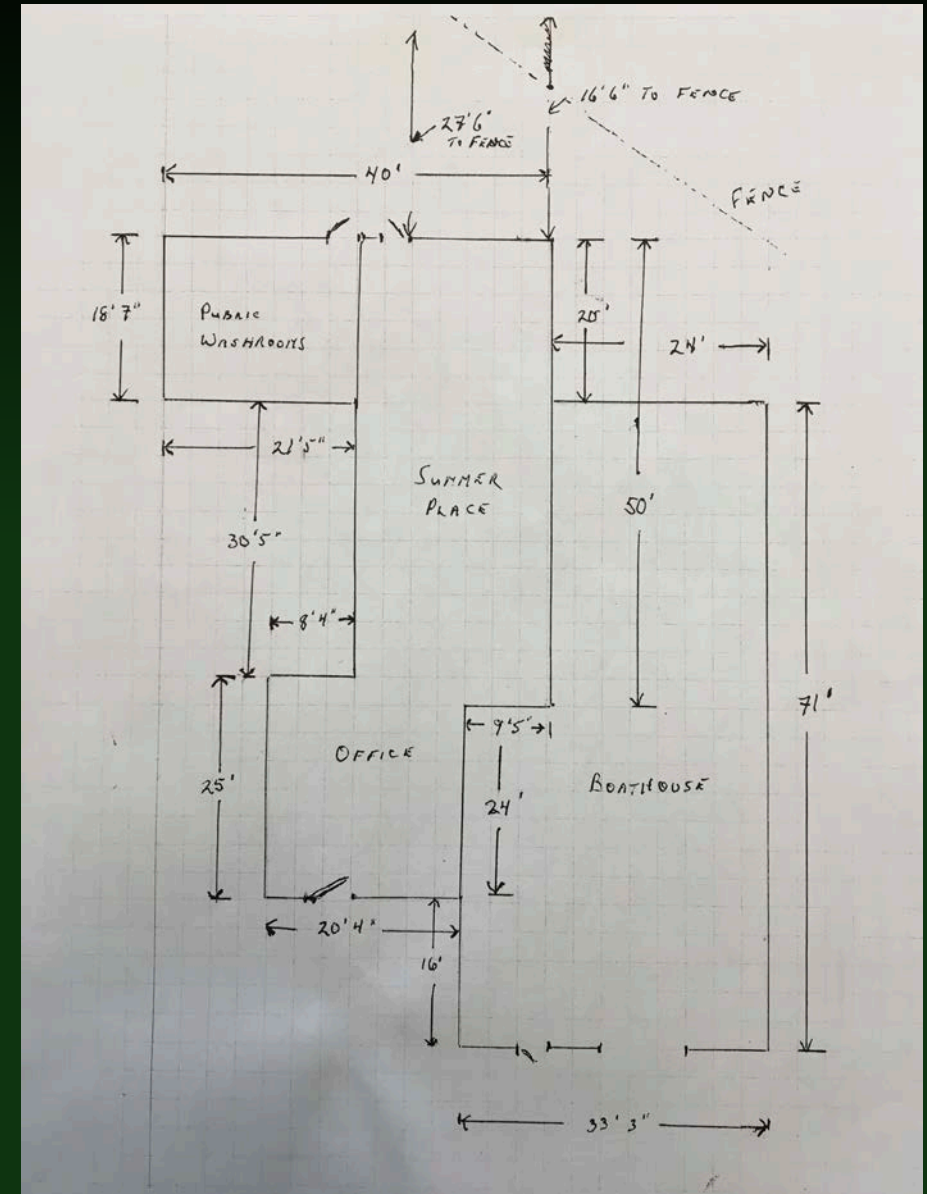 16'6" TO FENCE
27'6"
TO FENCE
40'
FENCE
18'7"
PUBLIC
WASHROOMS
20'
24'
21'5"
SUMMER
PLACE
50'
30'5"
8'4"
71'
9'5"
OFFICE
25'
BOATHOUSE
24'
20'4"
16'
33'3"